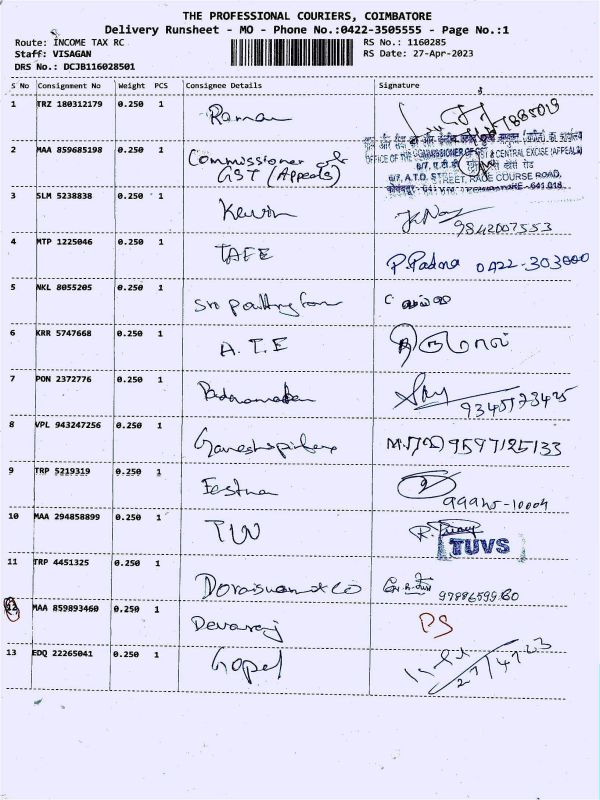 THE PROFESSIONAL COURIERS, COIMBATORE
Delivery Runsheet - MO - Phone No.:0422-3505555 - Page No.:1
Route: INCOME TAX RC
RS No.: 1160285
Staff: VISAGAN
RS Date: 27-Apr-2023
DRS No.: DCJB116028501
S No Consignment No Weight PCS Consignee Details Signature
1 TRZ 180312179 0.250 1 Raman
2 MAA 859685198 0.250 1 Commissioner of
GST (Appeals)
OFFICE OF THE COMMISSIONER OF GST & CENTRAL EXCISE (APPEALS)
6/7, A.T.D. STREET, RACE COURSE ROAD,
COIMBATORE - 641 018
3 SLM 5238838 0.250 1 Kevin
9842007553
4 MTP 1225046 0.250 1 TAFE P. Padma 0422-303000
5 NKL 8055205 0.250 1 Sro poultry farm
6 KRR 5747668 0.250 1 A.T.E
7 PON 2372776 0.250 1
8 VPL 943247256 0.250 1 9597125133
9 TRP 5219319 0.250 1
99945-10004
10 MAA 294858899 0.250 1
TUVS
11 TRP 4451325 0.250 1 Doraiswam & Co
12 MAA 859893460 0.250 1 Devaraj PS
13 EDQ 22265041 0.250 1 Gopal 27/4/23